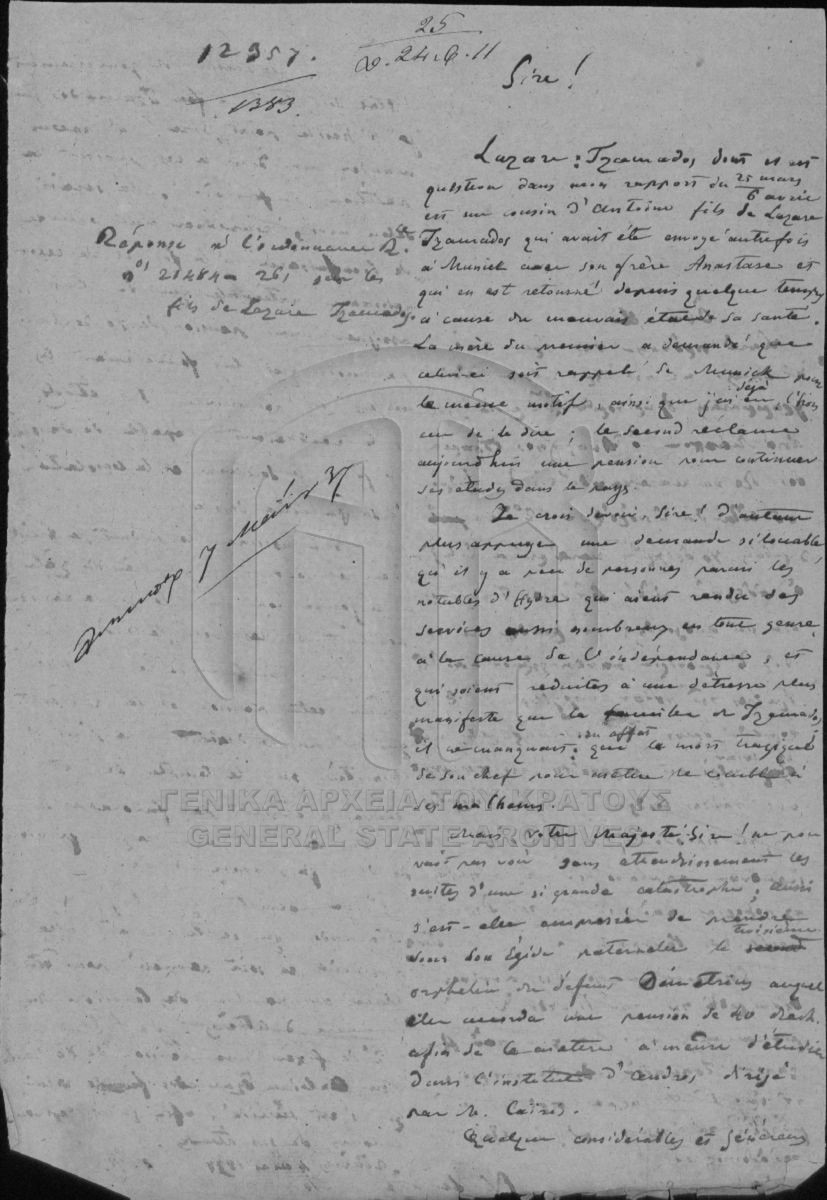 25
12357.
D. 24.6.11
1383.
Sire!
Lazare Tzamados dont il est
question dans mon rapport du 25 mars
6 avril
est un cousin d'Antoine fils de Lazare
Tzamados qui avait été envoyé autrefois
à Munich avec son frère Anastase et
qui en est retourné depuis quelque temps
à cause du mauvais état de sa santé.
La mère du premier a demandé que
celui-ci soit rappelé de Munich pour
le même motif, ainsi que j'ai eu déjà l'hon
eur de le dire, le second réclame
aujourd'hui une pension pour continuer
ses études dans le pays.
Je crois devoir, Sire! d'autant
plus appuyer une demande si louable,
qu'il y a peu de personnes parmi les
notables d'Hydre qui aient rendu des
services aussi nombreux en tout genre,
à la cause de l'indépendance, et
qui soient réduites à une détresse plus
manifeste que la famille de Tzamados
il ne manquait en effet que la mort tragique
de son chef pour mettre le comble à
ses malheurs.
Mais votre Majesté Sire! ne pou
vait pas voir sans attendrissement les
suites d'une si grande catastrophe, aussi
s'est-elle empressée de prendre
sous son Égide paternelle le troisième
orphelin du défunt Démétrius auquel
elle accorda une pension de 40 drach.
afin de le mettre à même d'étudier
dans l'institut d'Andros dirigé
par M. Cairis.
Quelque considérables et généreux
Réponse à l'ordonnance R.le
nos 21484 261 sur les
fils de Lazare Tzamados.
7 Μαΐου 37
ΓΕΝΙΚΑ ΑΡΧΕΙΑ ΤΟΥ ΚΡΑΤΟΥΣ
GENERAL STATE ARCHIVES